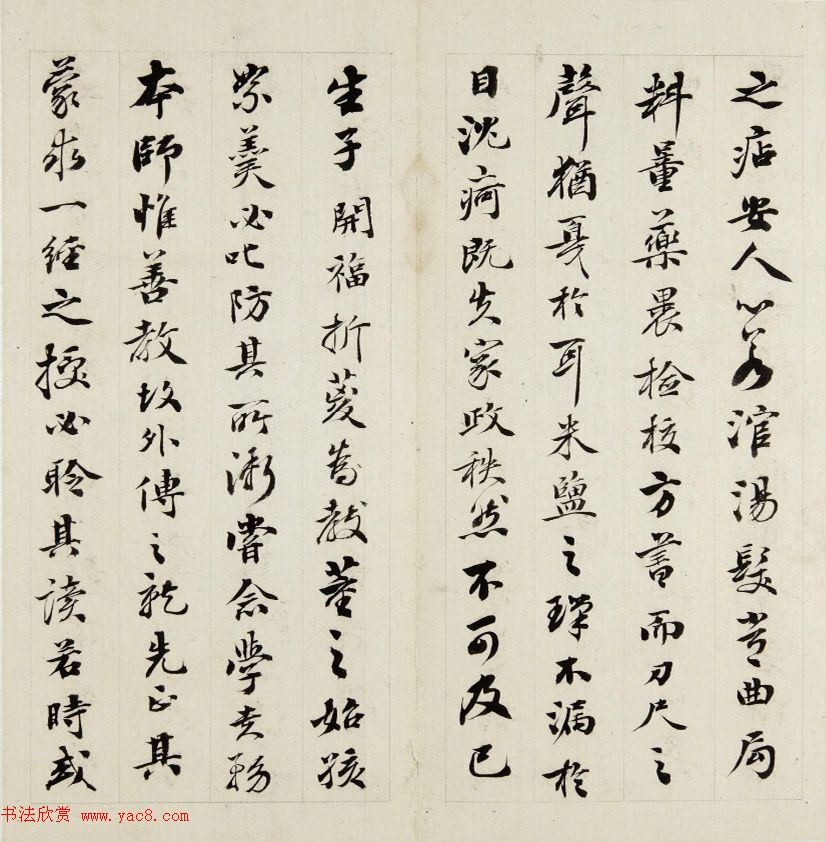 之痁安人心若涫湯髮常曲局
料量藥裹檢校方書而刀尺之
聲猶戛於耳米鹽之璅不漏於
目沈疴既失家政秩然不可及已
生子開福折葼為教董之始孩
絮羹必叱防其所漸嘗念學貴務
本師惟善教故外傅之就先正其
蒙求一經之授必聆其讀若時或
书法欣赏 www.yac8.com